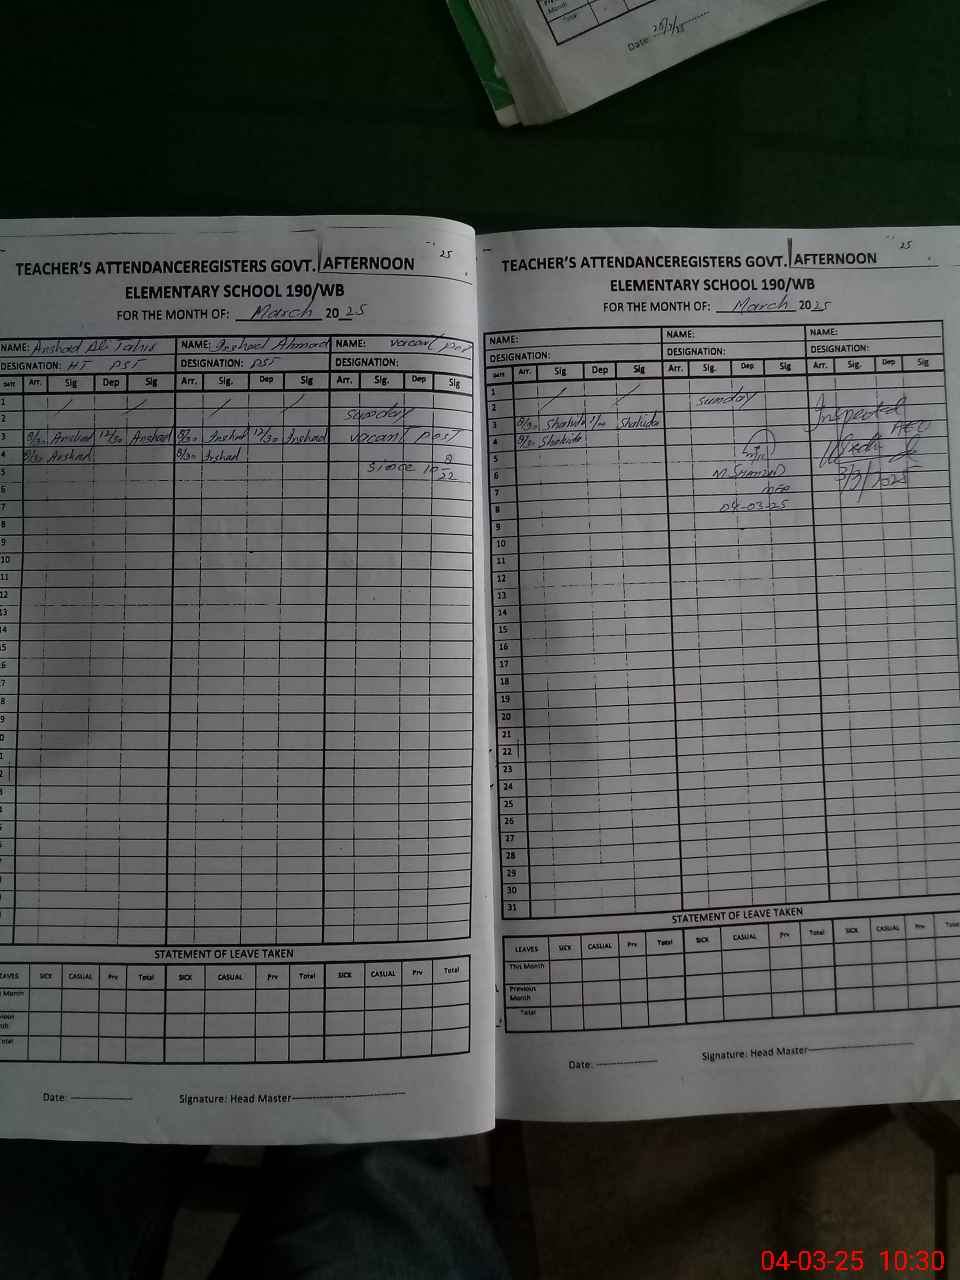 Month
Total
Date:
25
TEACHER'S ATTENDANCEREGISTERS GOVT. AFTERNOON
ELEMENTARY SCHOOL 190/WB
FOR THE MONTH OF: March 2025
NAME: Arshad Ali Tahir NAME: Irshad Ahmad NAME: vacant post
DESIGNATION: HT PST DESIGNATION: PST DESIGNATION:
DATE Arr. Sig Dep Sig Arr. Sig. Dep Sig Arr. Sig. Dep Sig
1
2 Sunday
3 8/30 Arshad 12/30 Arshad 8/30 Irshad 12/30 Irshad vacant post
4 8/30 Arshad 8/30 Irshad
5 Since
6
7
8
9
10
11
12
13
14
15
16
17
18
19
20
21
22
STATEMENT OF LEAVE TAKEN
LEAVES SICK CASUAL Prv Total SICK CASUAL Prv Total SICK CASUAL Prv Total
Month
Total
Date: Signature: Head Master
25
TEACHER'S ATTENDANCEREGISTERS GOVT. AFTERNOON
ELEMENTARY SCHOOL 190/WB
FOR THE MONTH OF: March 2025
NAME: NAME: NAME:
DESIGNATION: DESIGNATION: DESIGNATION:
DATE Arr. Sig Dep Sig Arr. Sig. Dep Sig Arr. Sig. Dep Sig
1
2 Sunday Inspected
3 8/30 Shahida Shahida AEO
4 8/30 Shahida
5
6 3/3/2025
7 MEA
8 04-03-25
9
10
11
12
13
14
15
16
17
18
19
20
21
22
23
24
25
26
27
28
29
30
31
STATEMENT OF LEAVE TAKEN
LEAVES SICK CASUAL Prv Total SICK CASUAL Prv Total SICK CASUAL Prv Total
This Month
Previous
Month
Total
Date: Signature: Head Master
04-03-25 10:30